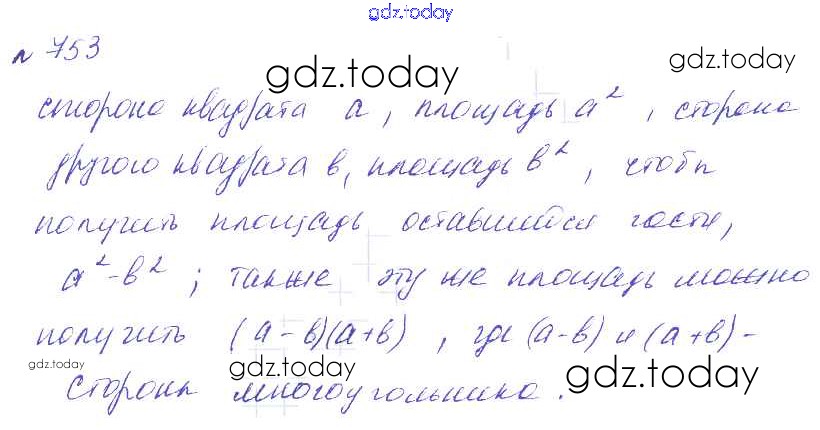 gdz.today
№ 753
gdz.today
gdz.today
сторона квадрата а, площадь а², сторона
другого квадрата в, площадь в², чтобы
получить площадь оставшейся части,
а²-в²; также эту же площадь можно
получить (а-в)(а+в), где (а-в) и (а+в)-
gdz.today
gdz.today
gdz.today
стороны многоугольника.